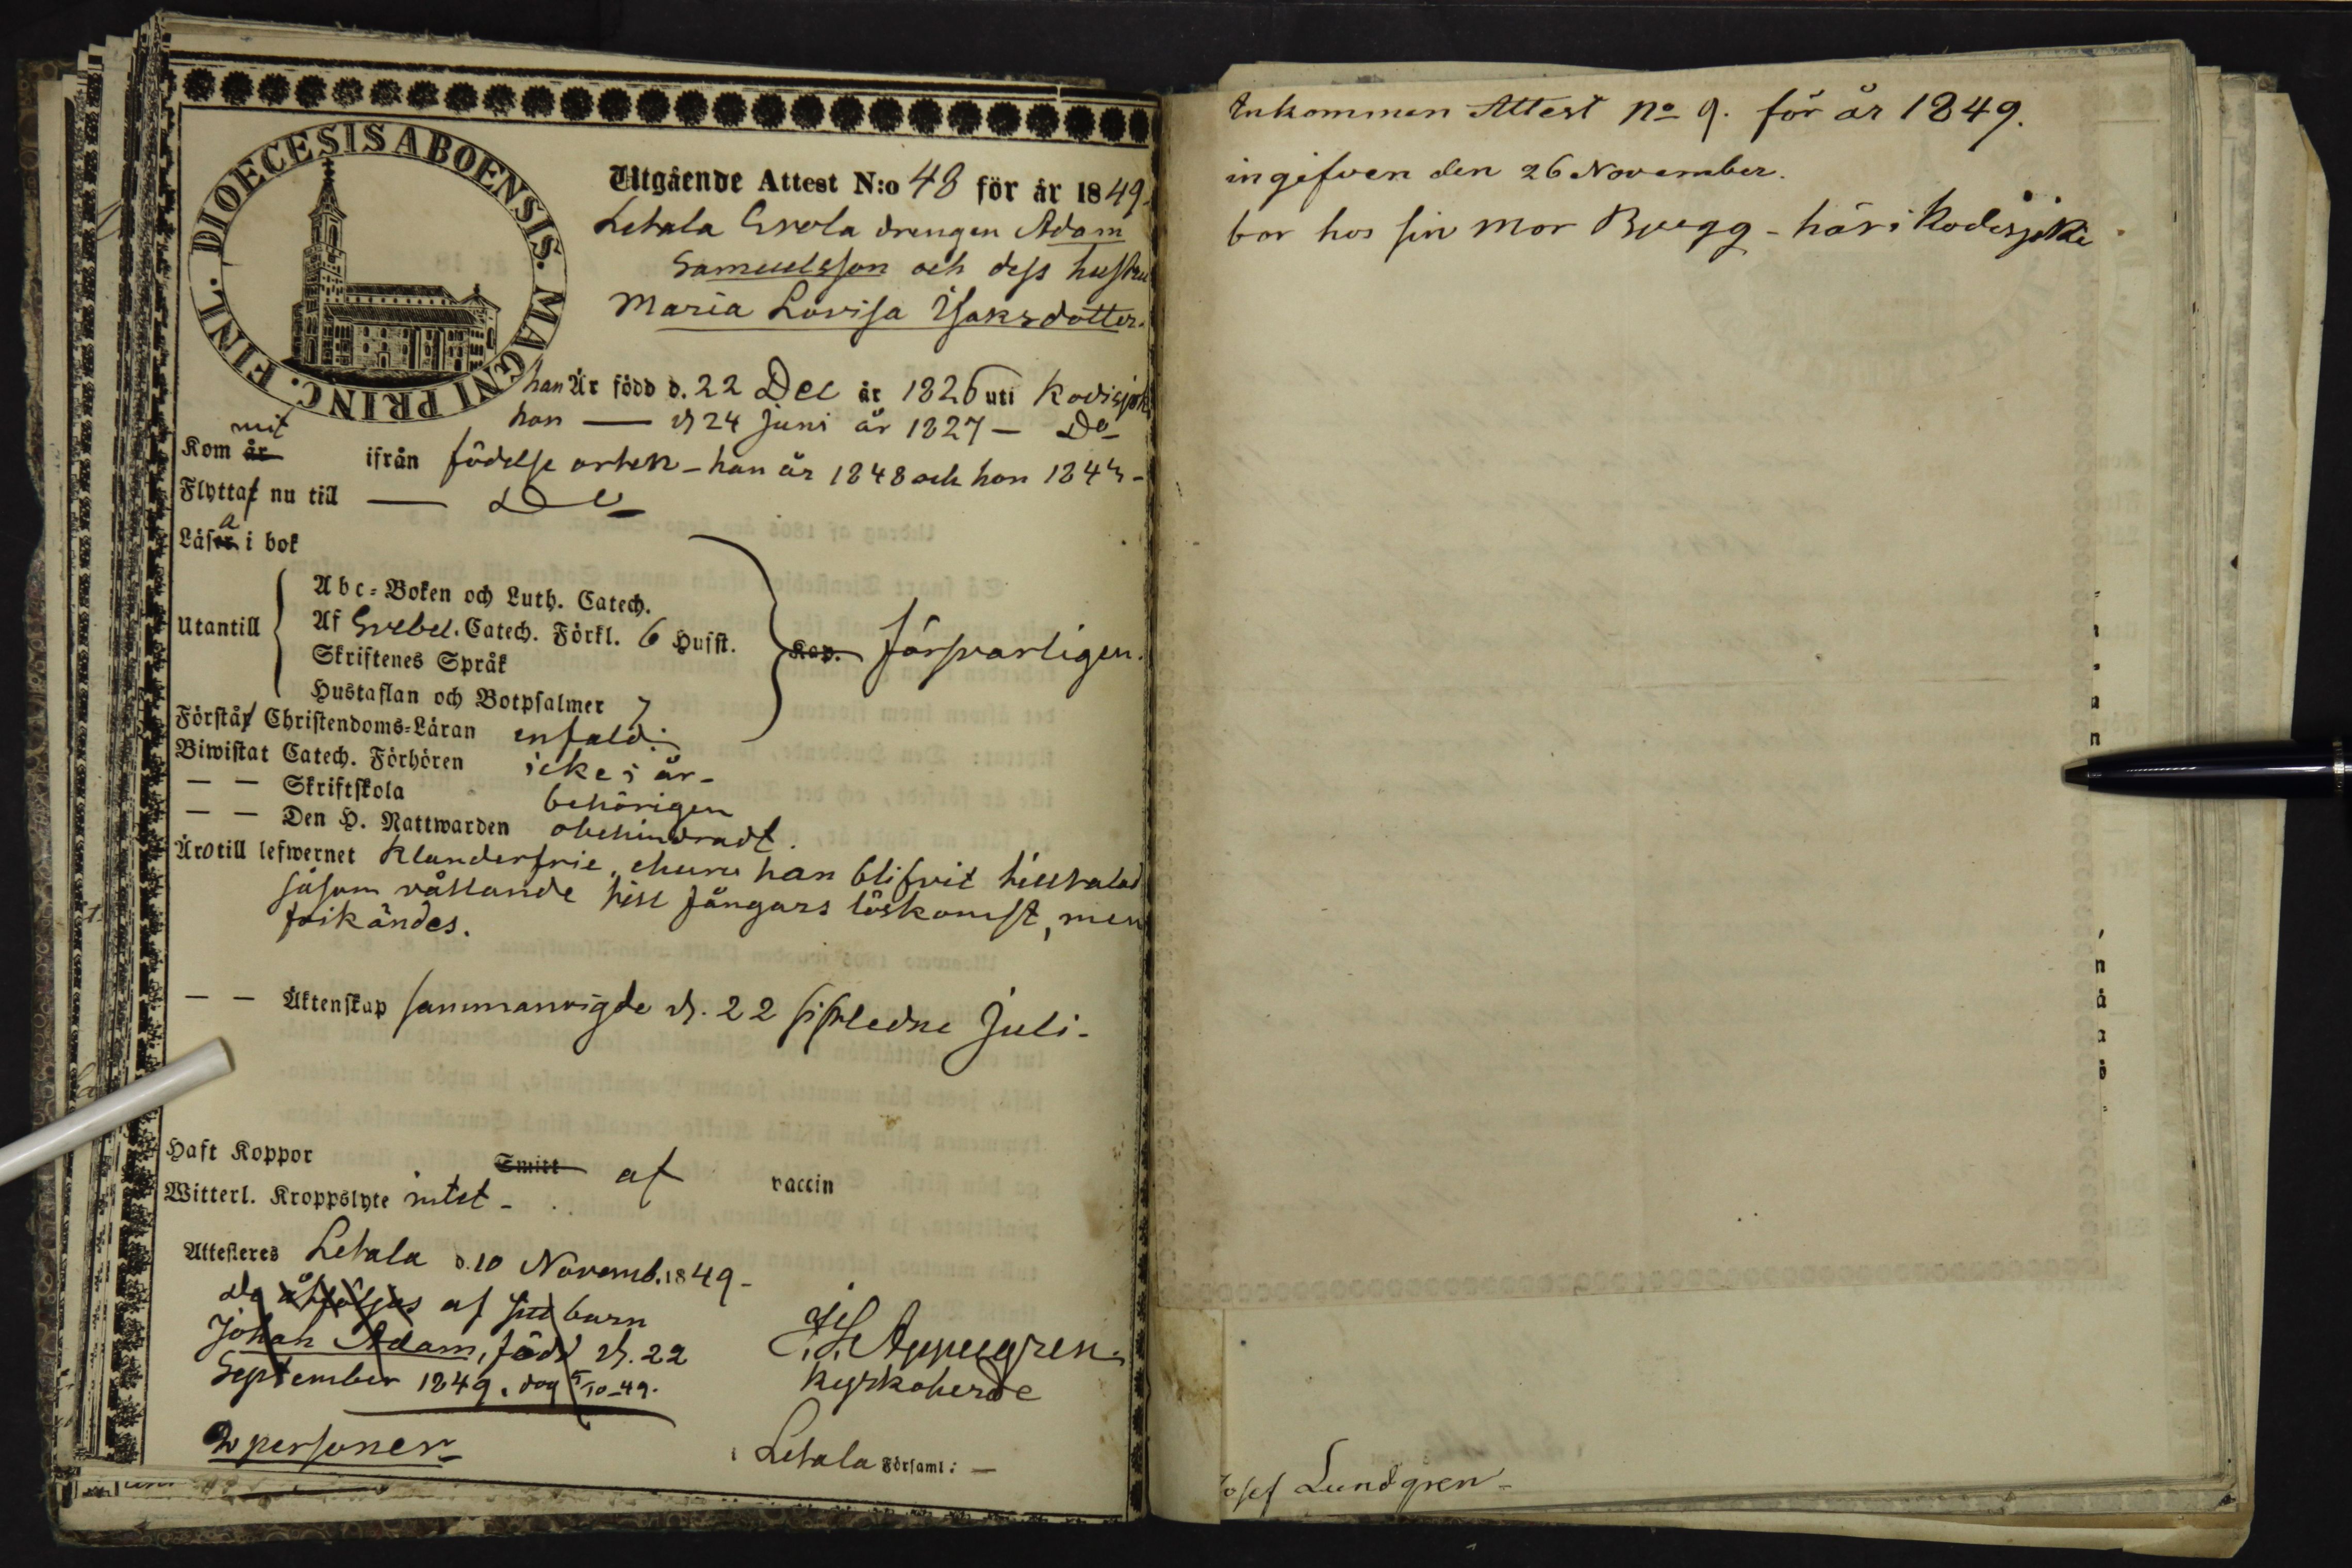 DIOECESIS ABOENSIS. MAGNI PRINC. FINL.
Utgående Attest N:o 48 för år 1849.
Letala Erola drengen Adam
Samuelsson och dess hustru
Maria Lovisa Isaksdotter.
han Är född d. 22 Dec år 1826 uti Kodisjok
hon — d. 24 Juni år 1827 — Do
Kom år ifrån födelse orten - han år 1848 och hon
Flytta nu till — Do
Läsa i bok
Utantill
Abc-Boken och Luth. Catech.
Af Svebel. Catech. Förkl. 6 Hufst.
Skriftenes Språk
Hustaflan och Botpsalmer 7
Kap. försvarligen.
Förstå Christendoms-Läran enfald:
Biwistat Catech. Förhören icke i år -
— — Skriftskola behörigen
— — Den H. Nattwarden obehindradt.
Äro till lefwernet klanderfrie, ehuru han blifvit tilltalad
såsom vållande till fångars löskomst, men
frikändes.
— — Äktenskap sammanvigde d. 22 sistledne Juli -
Haft Koppor Smitt af vaccin
Witterl. Kroppslyte intet -
Attesteres Letala d. 10 Novemb. 1849 -
De åtföljas af sitt barn
Johan Adam, född d. 22
September 1849. dog 5/10-49.
Kyrkoherde
2 personer
i Letala Församl: —
Inkommen Attest No 9. för år 1849.
ingifven den 26 November.
bor hos sin mor Bygg - här i Kodisjoki
Josef Lundgren -